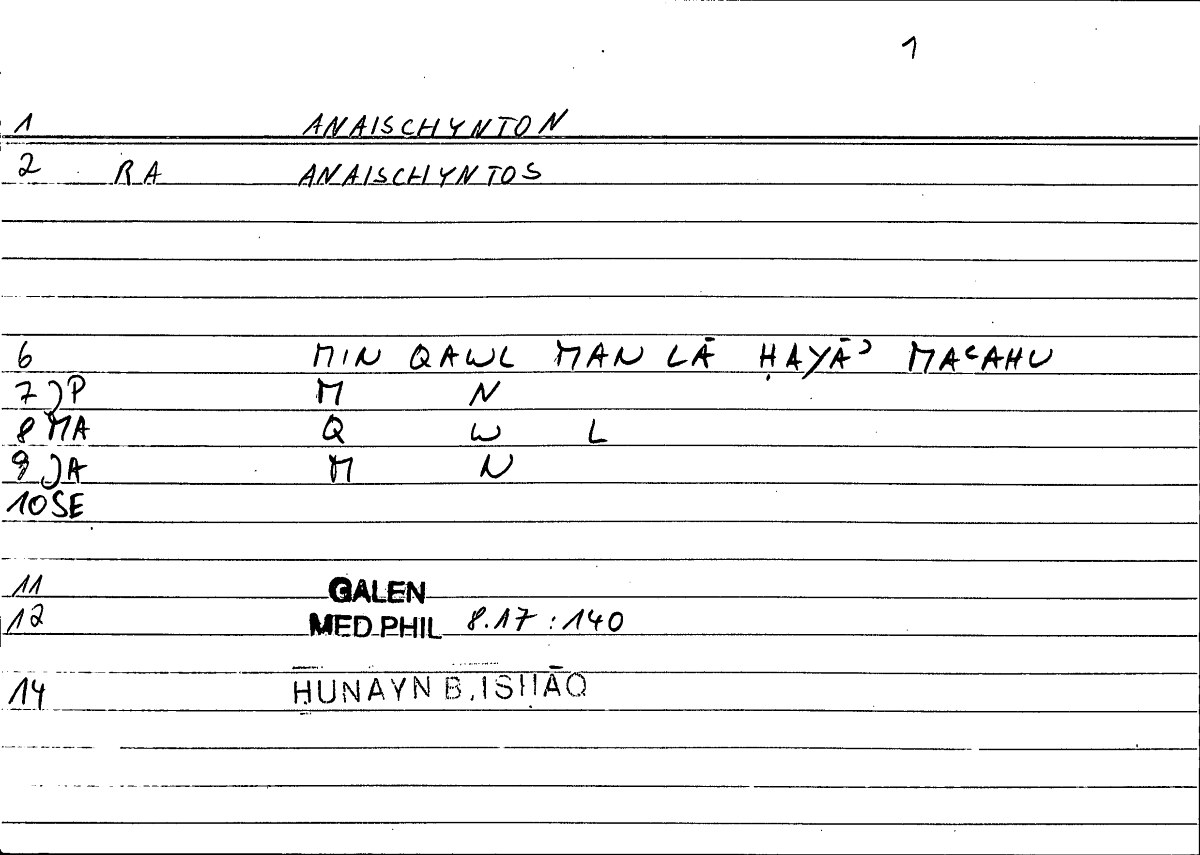 1
1 ANAISCHYNTON
2 RA ANAISCHYNTOS
6 MIN QAWL MAN LĀ ḤAYĀʾ MAʿAHU
7 JP M N
8 MA Q W L
9 JA M N
10 SE
11 GALEN
12 MED PHIL 8.17 : 140
14 ḤUNAYN B. ISḤĀQ